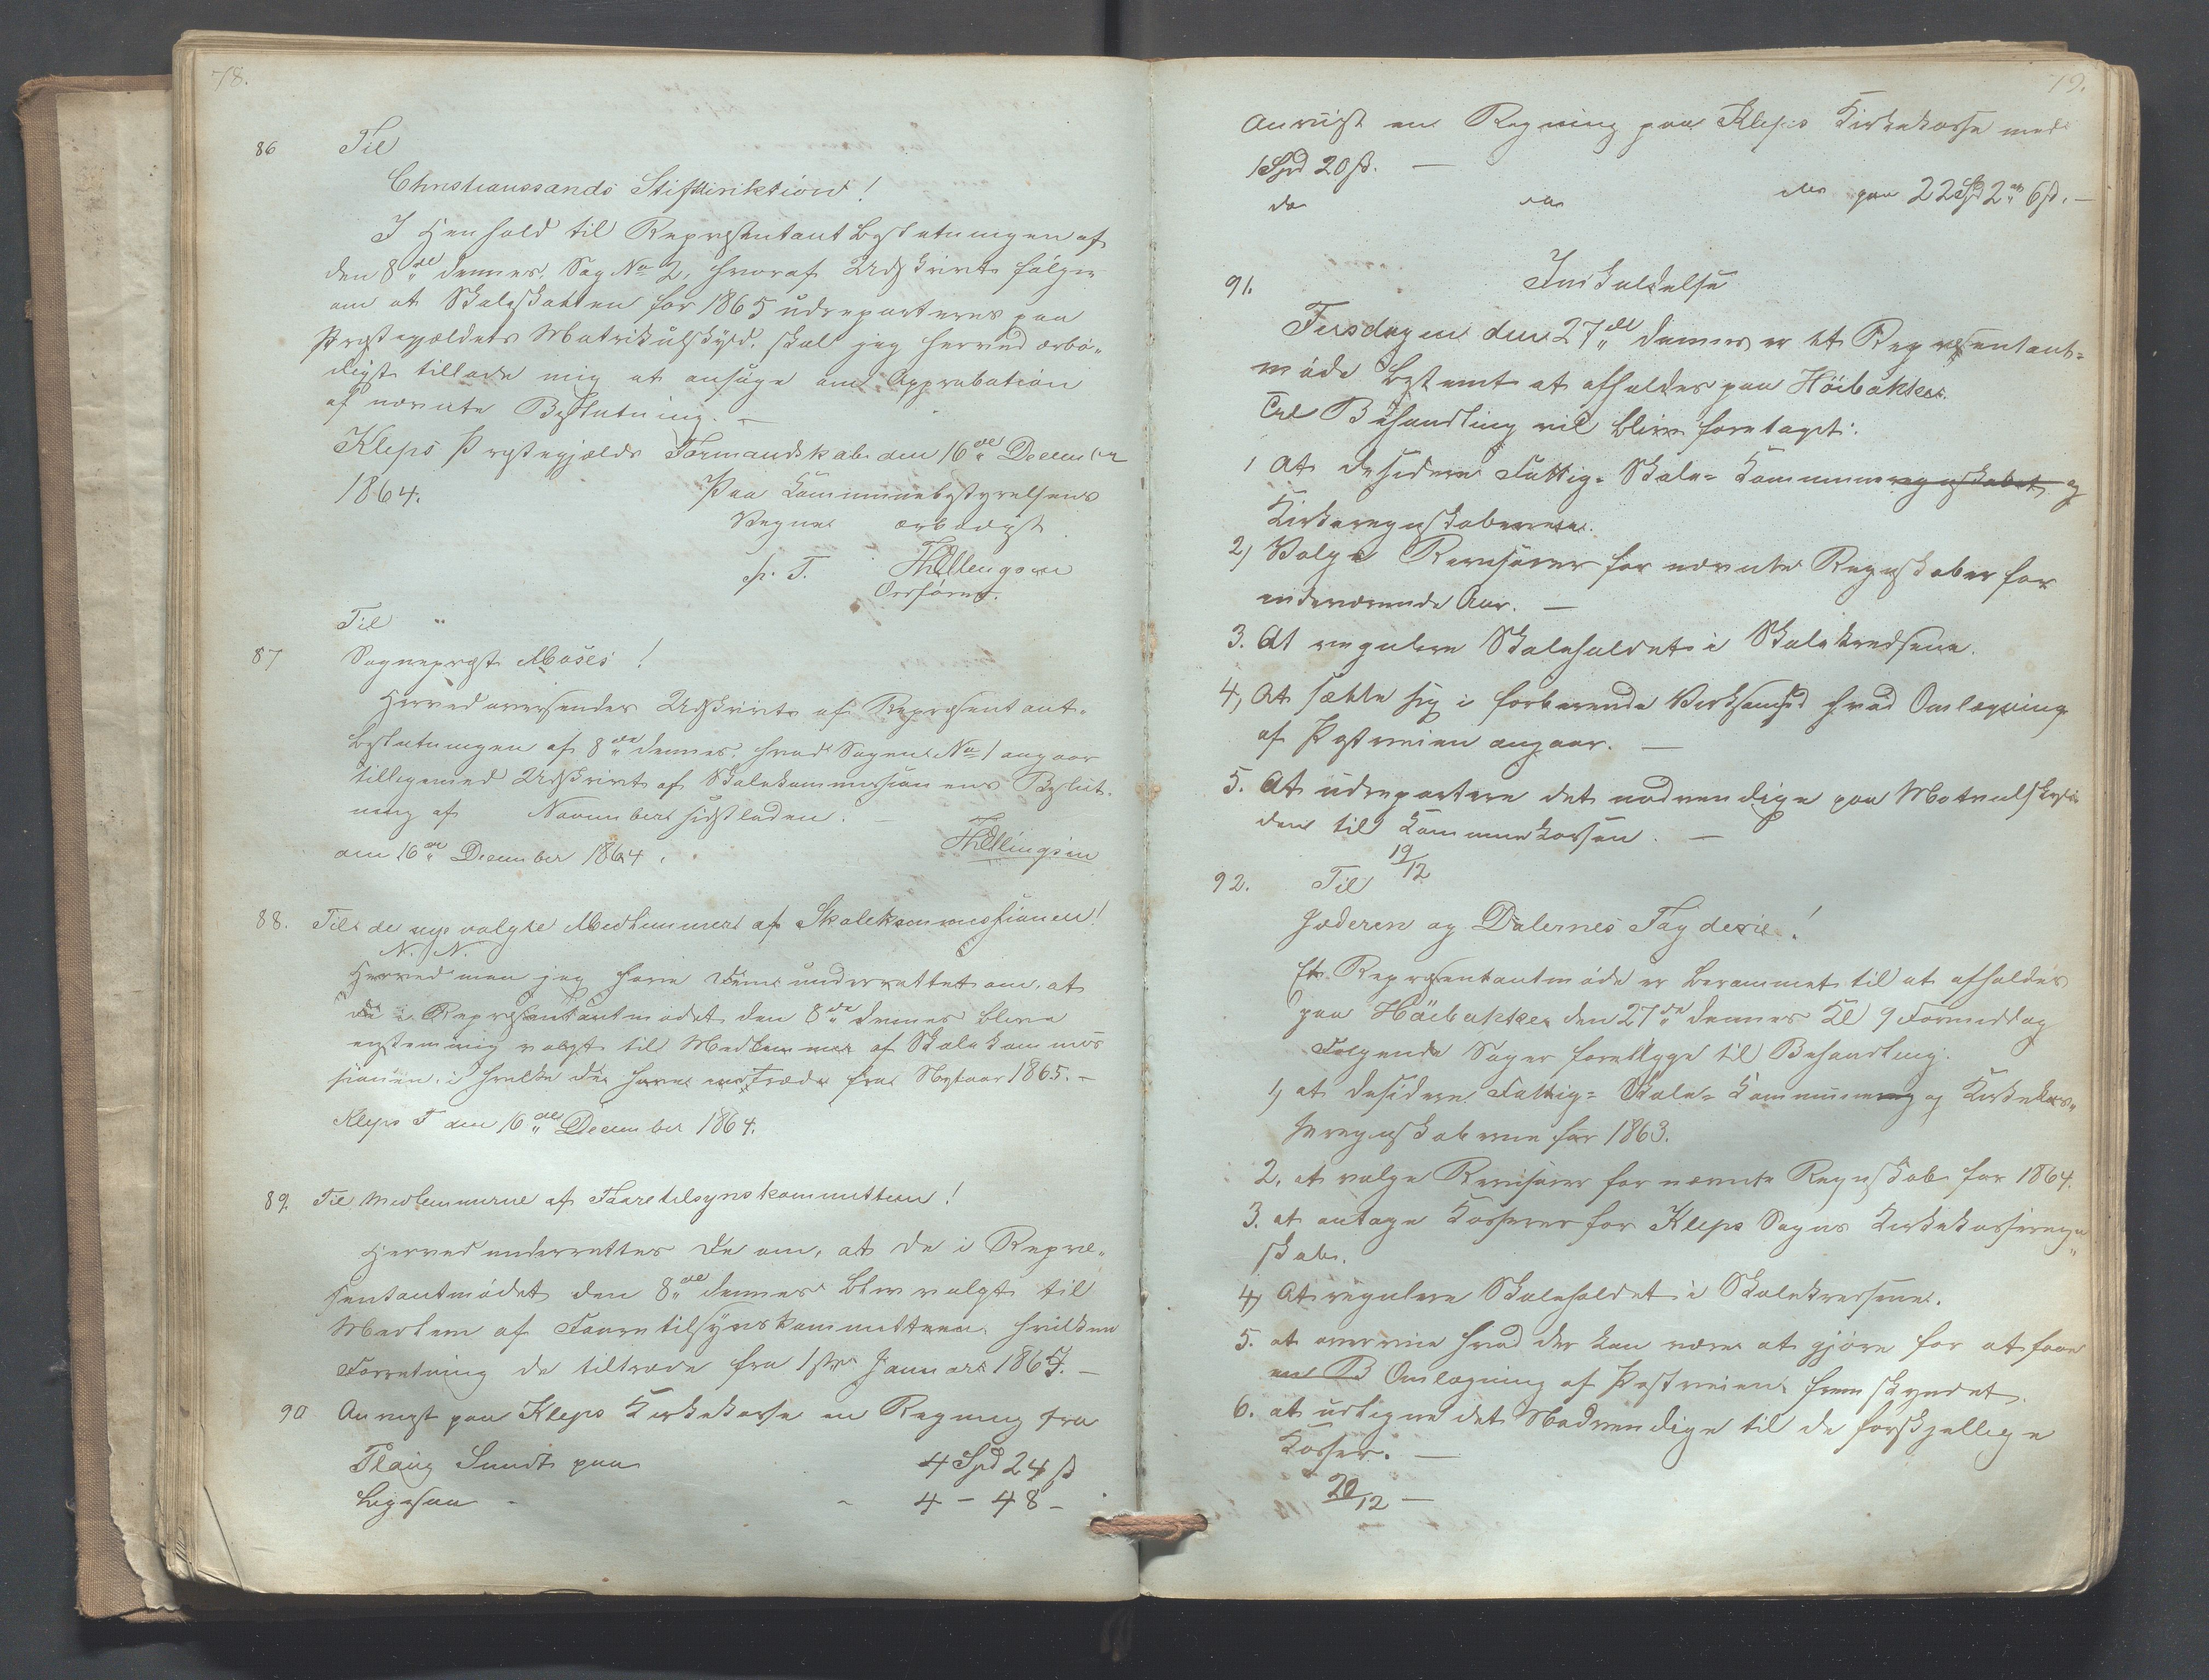 78.
86 Til
Christianssands Stiftdirektion!
I Henhold til Repræsentantbeslutningen af
den 8de dennes, Sag No 2, hvoraf Udskrivt følger
om at Skoleskatten for 1865 udreparteres paa
Præstegjældets Matrikulskyld, skal jeg herved ærbø„
digst tillade mig at ansøge om Approbation
af nævnte Beslutning. —
Kleps Præstegjælds Formandskab den 16de December
1864. Paa Kommunebestyrelsens
Vegne ærbødigst
p. T. ThEllingsen
Ordfører.
Til
87 Sogneprest Moses!
Herved oversendes Udskrivt af Repræsentant„
beslutningen af 8de dennes, hvad Sagen No 1 angaar
tilligemed Udskrivt af Skolekommissionens Beslut„
ning af November sidstleden. —
am 16de December 1864. ThEllingsen
88. Til de nye valgte Medlemmer af Skolekommissionen!
N. N.
Herved maa jeg have Dem underrettet om, at
De i Repræsentantmødet den 8de dennes bleve
enstemmig valgt til Medlemmer af Skolekommis
sionen, i hvilke De have at træde fra Nytaar 1865. —
Kleps F den 16de December 1864.
89. Til Medlemmerne af Faaretilsynskommitteen!
Herved underrettes De om, at De i Repræ„
sentantmødet den 8de dennes blev valgt til
Medlem af Faaretilsynskommitteen, hvilken
Forretning De tiltræde fra 1ste Januar 1865. —
90 Anvist paa Kleps Kirkekasse en Regning fra
Plaug Sundt paa 4 Spd 24 ß
Ligesaa - - 4 - 48 -
79.
Anvist en Regning paa Kleps Kirkekasse med
1 Spd 20 ß. —
do do do paa 22 Spd 2 6 ß. —
91. Indkaldelse
Tirsdagen den 27de dennes er et Repræsentant=
møde bestemt at afholdes paa Høibakken.
Til Behandling vil blive foretaget:
1 At desidere Fattig= Skole= Kommuneregnskabet og
Kirkeregnskaberne.
2) Valge Revisorer for nævnte Regnskaber for
indeværende Aar. —
3. At regulere Skoleholdet i Skolekredsene.
4, At sætte sig i forberende Virksomhed hvad Omlægning
af Postveien angaar. —
5. At udrepartere det nødvendige paa Matrulskyl„
den til Kommunekassen. —
19/12
92. Til
Jæderen og Dalernes Fogderie!
Et Repræsentantmøde er berammet til at afholdes
paa Høibakken den 27de dennes Kl 9 Formiddag
Følgende Sager foreligge til Behandling:
1, at desidere Fattig= Skole= Kommunereg og Kirkekas„
seregnskaberne for 1863.
2, at valge Revisorer for nævnte Regnskab for 1864.
3. at antage Kasserer for Kleps Sogns Kirkekasseregn„
skab.
4, At regulere Skoleholdet i Skolekredsene.
5. at overveie hvad der kan være at gjøre for at faae
en B Omlægning af Postveien fremskyndet.
6. at udligne det Nødvendige til de forskjellige
Kasser. —
20/12 —